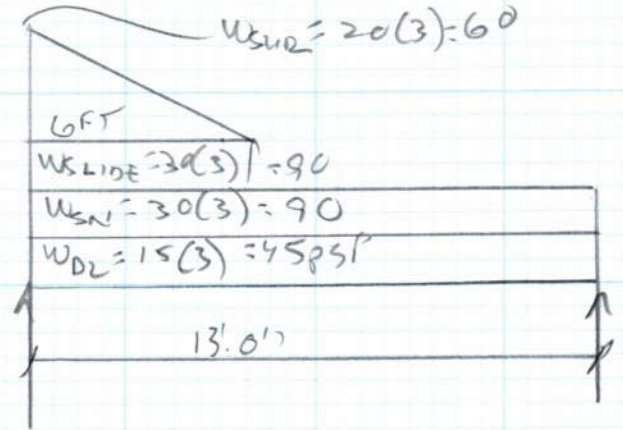 WSUR = 20(3) = 60
6FT
WSLIDE = 30(3) = 90
WSN = 30(3) = 90
WDL = 15(3) = 45psf
13'.0"